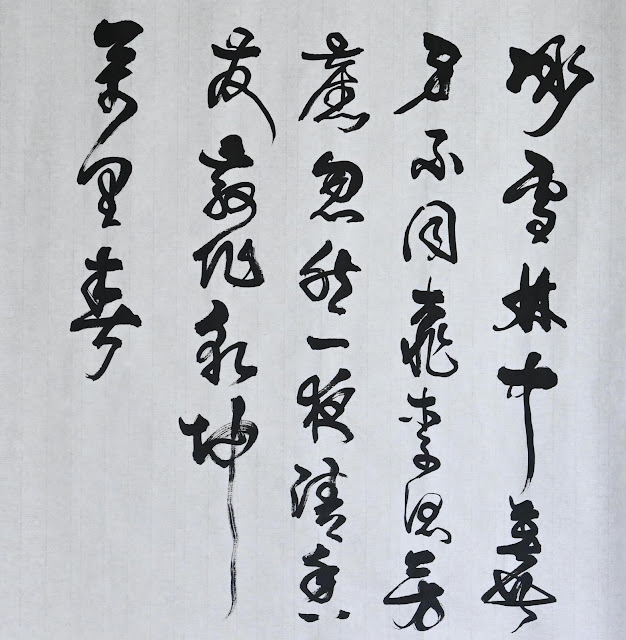 冰雪林中著此
身不同桃李混芳
塵忽然一夜清香
發散作乾坤
萬里春